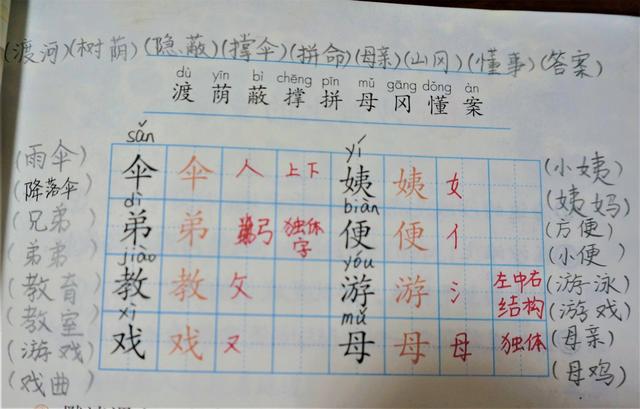 (渡河)(树荫)(隐蔽)(撑伞)(拼命)(母亲)(山冈)(懂事)(答案)
dù yīn bì chēng pīn mǔ gāng dǒng àn
渡 荫 蔽 撑 拼 母 冈 懂 案
sǎn yí
(雨伞) 伞 伞 人 上下 姨 姨 女 (小姨)
(降落伞) (姨妈)
dì biàn
(兄弟) 弟 弟 弓 独体字 便 便 亻 (方便)
(弟弟) (小便)
jiào yóu
(教育) 教 教 攵 游 游 氵 左中右结构 (游泳)
(教室) (游戏)
xì mǔ
(游戏) 戏 戏 又 母 母 母 独体 (母亲)
(戏曲) (母鸡)